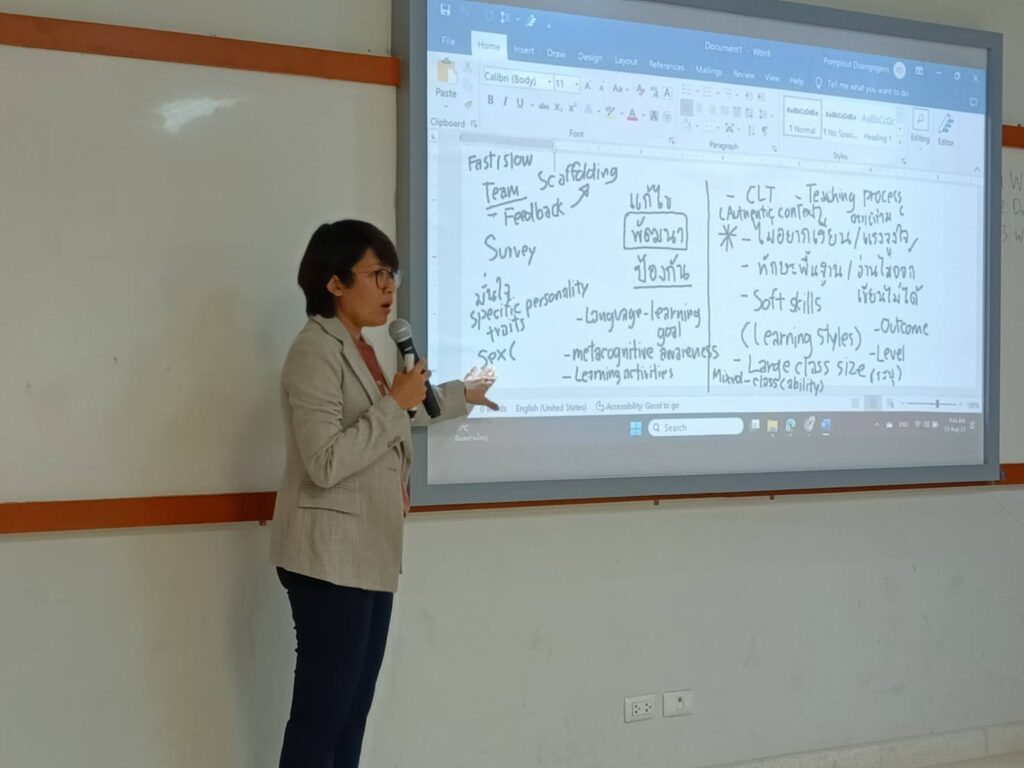 Document1 - Word
Pornpisut Duangngern
File Home Insert Draw Design Layout References Mailings Review View Help Tell me what you want to do
Paste
Calibri (Body) 11
Clipboard
Font
Paragraph
Styles
AaBbCcDdEe AaBbCcDdEe AaBbCcDd
1 Normal 1 No Spaci... Heading 1
Editing
Editor
Fast/slow
Team Scaffolding
- Feedback
Survey
มั่นใจ
specific personality
traits
sex(
แก้ไข
พัฒนา
ป้องกัน
- Language-learning
goal
- metacognitive awareness
- Learning activities
- CLT - Teaching process
(Authentic context)
* - ไม่อยากเรียน/แรงจูงใจ
- ทักษะพื้นฐาน/อ่านไม่ออก
เรียนไม่ได้
- Soft skills
(Learning Styles) - Outcome
- Large class size - Level
Mixed-class (ability) (ระบุ)
English (United States) Accessibility: Good to go
Search